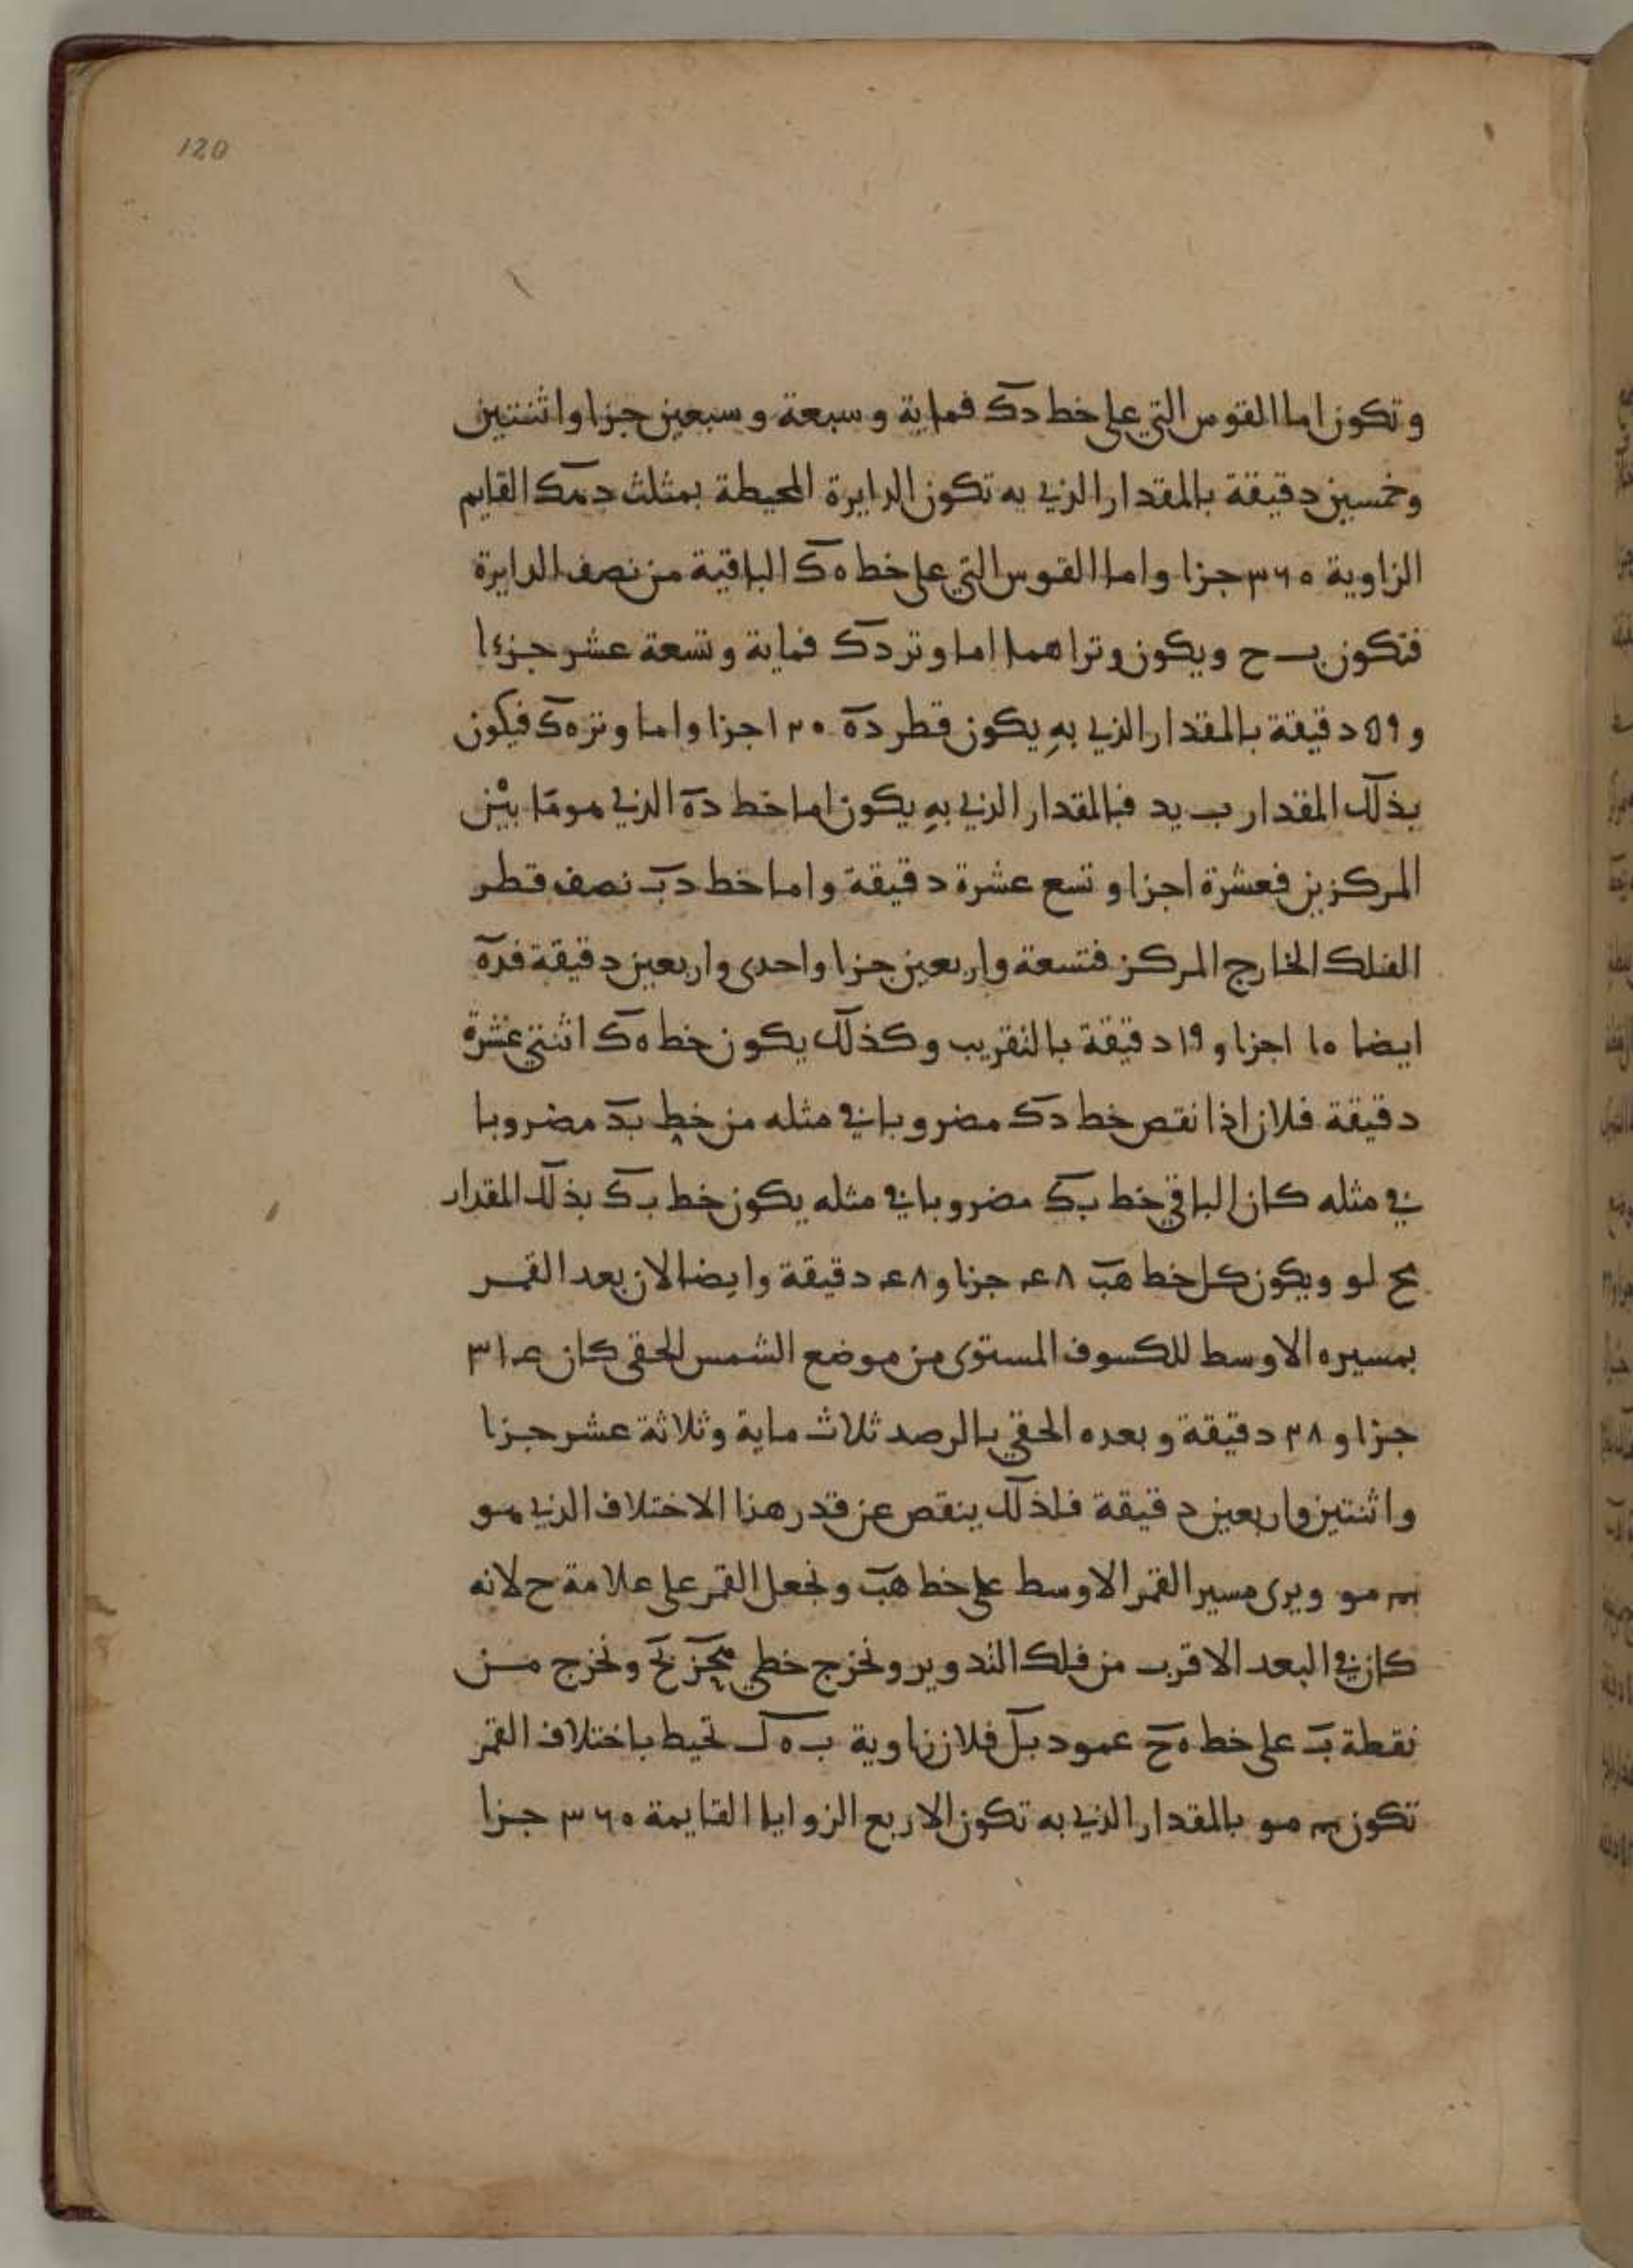 120
وتكون اما القوس التي على خط دك فماية وسبعة وسبعين جزا واثنتين
وخمسين دقيقة بالمقدار الذي به تكون الدايرة المحيطة بمثلث دهك القايم
الزاوية ٣٦٠ جزا واما القوس التي على خط ه‍ك الباقية من نصف الدايرة
فتكون ب ح ويكون وتراهما اما وتر دك فماية وتسعة عشر جزءا
و ٥٩ دقيقة بالمقدار الذي بهِ يكون قطر ده ١٢٠ جزا واما وتر ه‍ك فيكون
بذلك المقدار ب يد فبالمقدار الذي بهِ يكون اما خط ده الذي هو مَا بيْن
المركزين فعشرة اجزا وتسع عشرة دقيقة واما خط دب نصف قطر
الفلك الخارج المركز فتسعة واربعين جزا واحدى واربعين دقيقة فده
ايضا ١٠ اجزا و ١٩ دقيقة بالتقريب وكذلك يكون خط ه‍ك اثنتي عشرة
دقيقة فلان اذا نقص خط دك مضروبا في مثله من خط بد مضروبا
في مثله كان الباقي خط بك مضروبا في مثله يكون خط بك بذلك المقدار
مح لو ويكون كل خط هب ٤٨ جزا و ٤٨ دقيقة وايضا الان بعد القمر
بمسيره الاوسط للكسوف المستوى من موضع الشمس الحقى كان ٣١٤
جزا و ٢٨ دقيقة وبعده الحقي بالرصد ثلاث ماية وثلاثة عشر جزا
واثنتين واربعين دقيقة فلذلك ينقص عن قدر هذا الاختلاف الذي هو
مو ويرى مسير القمر الاوسط على خط هب ونجعل القمر على علامة ح لانه
كان في البعد الاقرب من فلك التدوير ونخرج خطي بح ونخرج من
نقطة ب على خط هح عمود بل فلان زاوية ب ه ل تحيط باختلاف القمر
تكون مو بالمقدار الذي به تكون الاربع الزوايا القايمة ٣٦٠ جزا